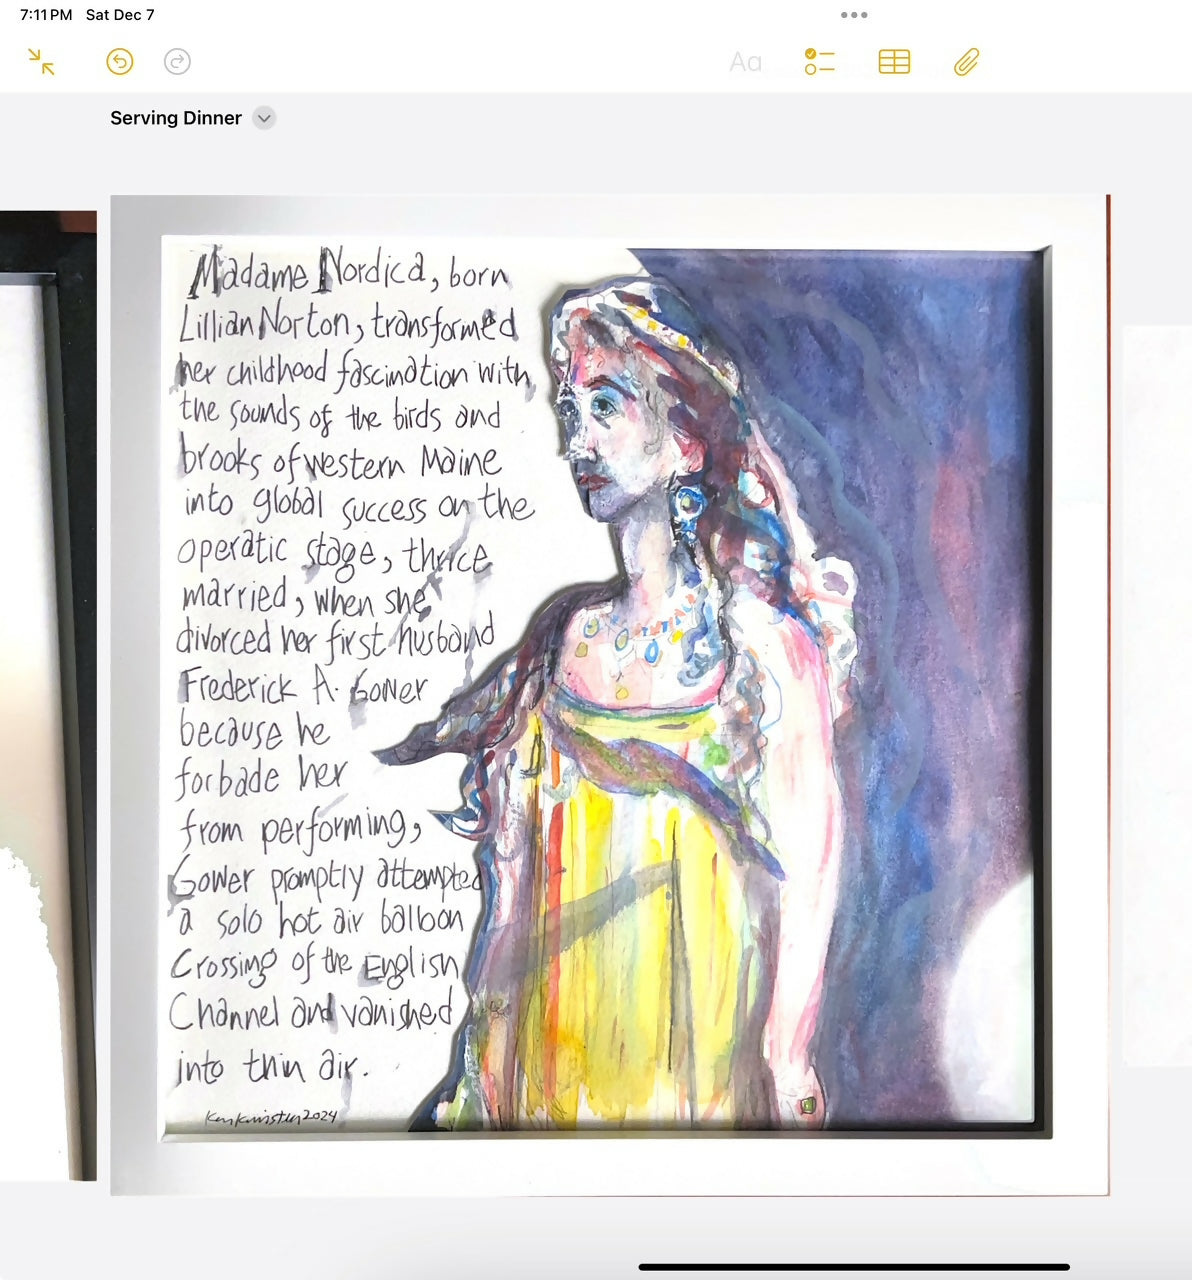 7:11 PM Sat Dec 7
Aa
Serving Dinner
Madame Nordica, born
Lillian Norton, transformed
her childhood fascination with
the sounds of the birds and
brooks of western Maine
into global success on the
operatic stage, thrice
married, when she
divorced her first husband
Frederick A. Gower
because he
forbade her
from performing,
Gower promptly attempted
a solo hot air balloon
Crossing of the English
Channel and vanished
into thin air.
2024